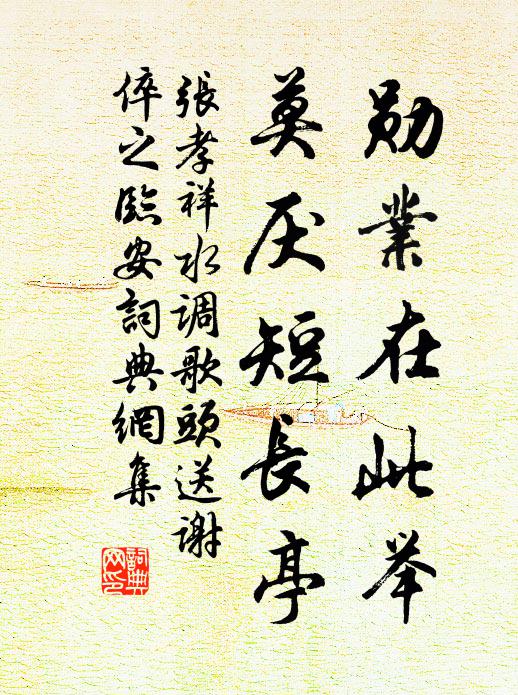 勛業在此举
莫厌短長亭
張孝祥水调歌頭送谢
倅之臨安詞典網集
詞典
网印